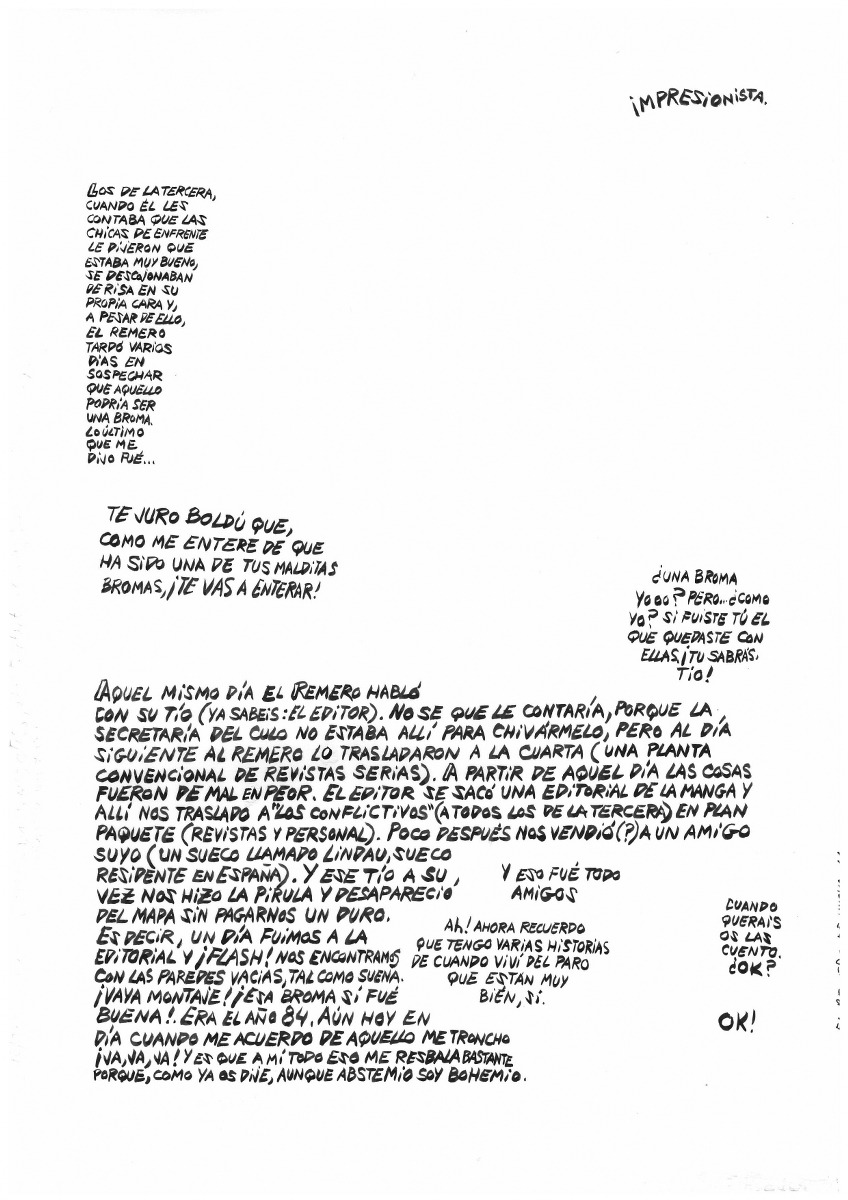 ¡MPRESIONISTA.
LOS DE LA TERCERA,
CUANDO ÉL LES
CONTABA QUE LAS
CHICAS DE ENFRENTE
LE DIJERON QUE
ESTABA MUY BUENO,
SE DESCOJONABAN
DE RISA EN SU
PROPIA CARA Y,
A PESAR DE ELLO,
EL REMERO
TARDÓ VARIOS
DÍAS EN
SOSPECHAR
QUE AQUELLO
PODRÍA SER
UNA BROMA.
LO ÚLTIMO
QUE ME
DIJO FUÉ...
TE JURO BOLDÚ QUE,
COMO ME ENTERE DE QUE
HA SIDO UNA DE TUS MALDITAS
BROMAS, ¡TE VAS A ENTERAR!
¿UNA BROMA
YOOO? PERO...¿COMO
YO? SI FUISTE TÚ EL
QUE QUEDASTE CON
ELLAS. ¡TU SABRÁS,
TÍO!
AQUEL MISMO DÍA EL REMERO HABLÓ
CON SU TÍO (YA SABEIS: EL EDITOR). NO SE QUE LE CONTARÍA, PORQUE LA
SECRETARIA DEL CULO NO ESTABA ALLÍ PARA CHIVÁRMELO, PERO AL DÍA
SIGUIENTE AL REMERO LO TRASLADARON A LA CUARTA (UNA PLANTA
CONVENCIONAL DE REVISTAS SERIAS). A PARTIR DE AQUEL DÍA LAS COSAS
FUERON DE MAL EN PEOR. EL EDITOR SE SACÓ UNA EDITORIAL DE LA MANGA Y
ALLÍ NOS TRASLADO A "LOS CONFLICTIVOS" (A TODOS LOS DE LA TERCERA) EN PLAN
PAQUETE (REVISTAS Y PERSONAL). POCO DESPUÉS NOS VENDIÓ (?) A UN AMIGO
SUYO (UN SUECO LLAMADO LINDAU, SUECO
RESIDENTE EN ESPAÑA). Y ESE TÍO A SU
VEZ NOS HIZO LA PIRULA Y DESAPARECIÓ
DEL MAPA SIN PAGARNOS UN DURO.
ES DECIR, UN DÍA FUIMOS A LA
EDITORIAL Y ¡FLASH! NOS ENCONTRAMOS
CON LAS PAREDES VACIAS, TAL COMO SUENA.
¡VAYA MONTAJE! ¡ESA BROMA SÍ FUÉ
BUENA!. ERA EL AÑO 84. AÚN HOY EN
DÍA CUANDO ME ACUERDO DE AQUELLO ME TRONCHO
¡JA, JA, JA! Y ES QUE A MÍ TODO ESO ME RESBALA BASTANTE
PORQUE, COMO YA OS DIJE, AUNQUE ABSTEMIO SOY BOHEMIO.
Y ESO FUÉ TODO
AMIGOS
AH! AHORA RECUERDO
QUE TENGO VARIAS HISTORIAS
DE CUANDO VIVÍ DEL PARO
QUE ESTÁN MUY
BIÉN, SÍ.
CUANDO
QUERAIS
OS LAS
CUENTO.
¿OK?
OK!